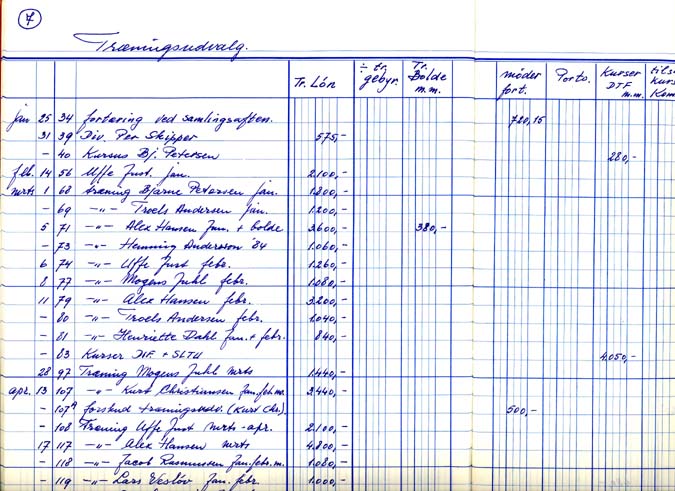 7
Træningsudvalg.
Tr. Lón ÷ tr. gebyr. Tr. Bolde m.m. møder fort. Porto. Kurser DTF m.m.
jan 25 34 fortæring ved samlingsaften. 720,15
31 39 Div. Per Skipper 575,-
- 40 Kursus Bj. Petersen 280,-
feb. 14 56 Uffe Just. jan. 2.100,-
mrts 1 68 træning Bjarne Petersen jan. 1.800,-
- 69 -"- Troels Andersen jan. 1.200,-
5 71 -"- Alex Hansen Jan. + bolde 3.600,- 380,-
- 73 -"- Henning Andersson 84 1.060,-
6 74 -"- Uffe Just febr. 1.260,-
8 77 -"- Mogens Juhl febr. 1.080,-
11 79 -"- Alex Hansen febr. 3.200,-
- 80 -"- Troels Andersen febr. 1.040,-
- 81 -"- Henriette Dahl Jan. + febr. 840,-
- 83 Kurser DIF + SLTU 4.050,-
28 97 Træning Mogens Juhl mrts 1.440,-
apr. 13 107 -"- Kurt Christiansen Jan. feb. m. 2.440,-
- 107A forskud træningsudv. (Kurt Chr.) 500,-
- 108 Træning Uffe Just mrts - apr. 2.100,-
17 117 -"- Alex Hansen mrts 4.800,-
- 118 -"- Jacob Rasmussen Jan. febr. m. 1.080,-
- 119 -"- Lars Vesløv Jan. febr. 1.000,-